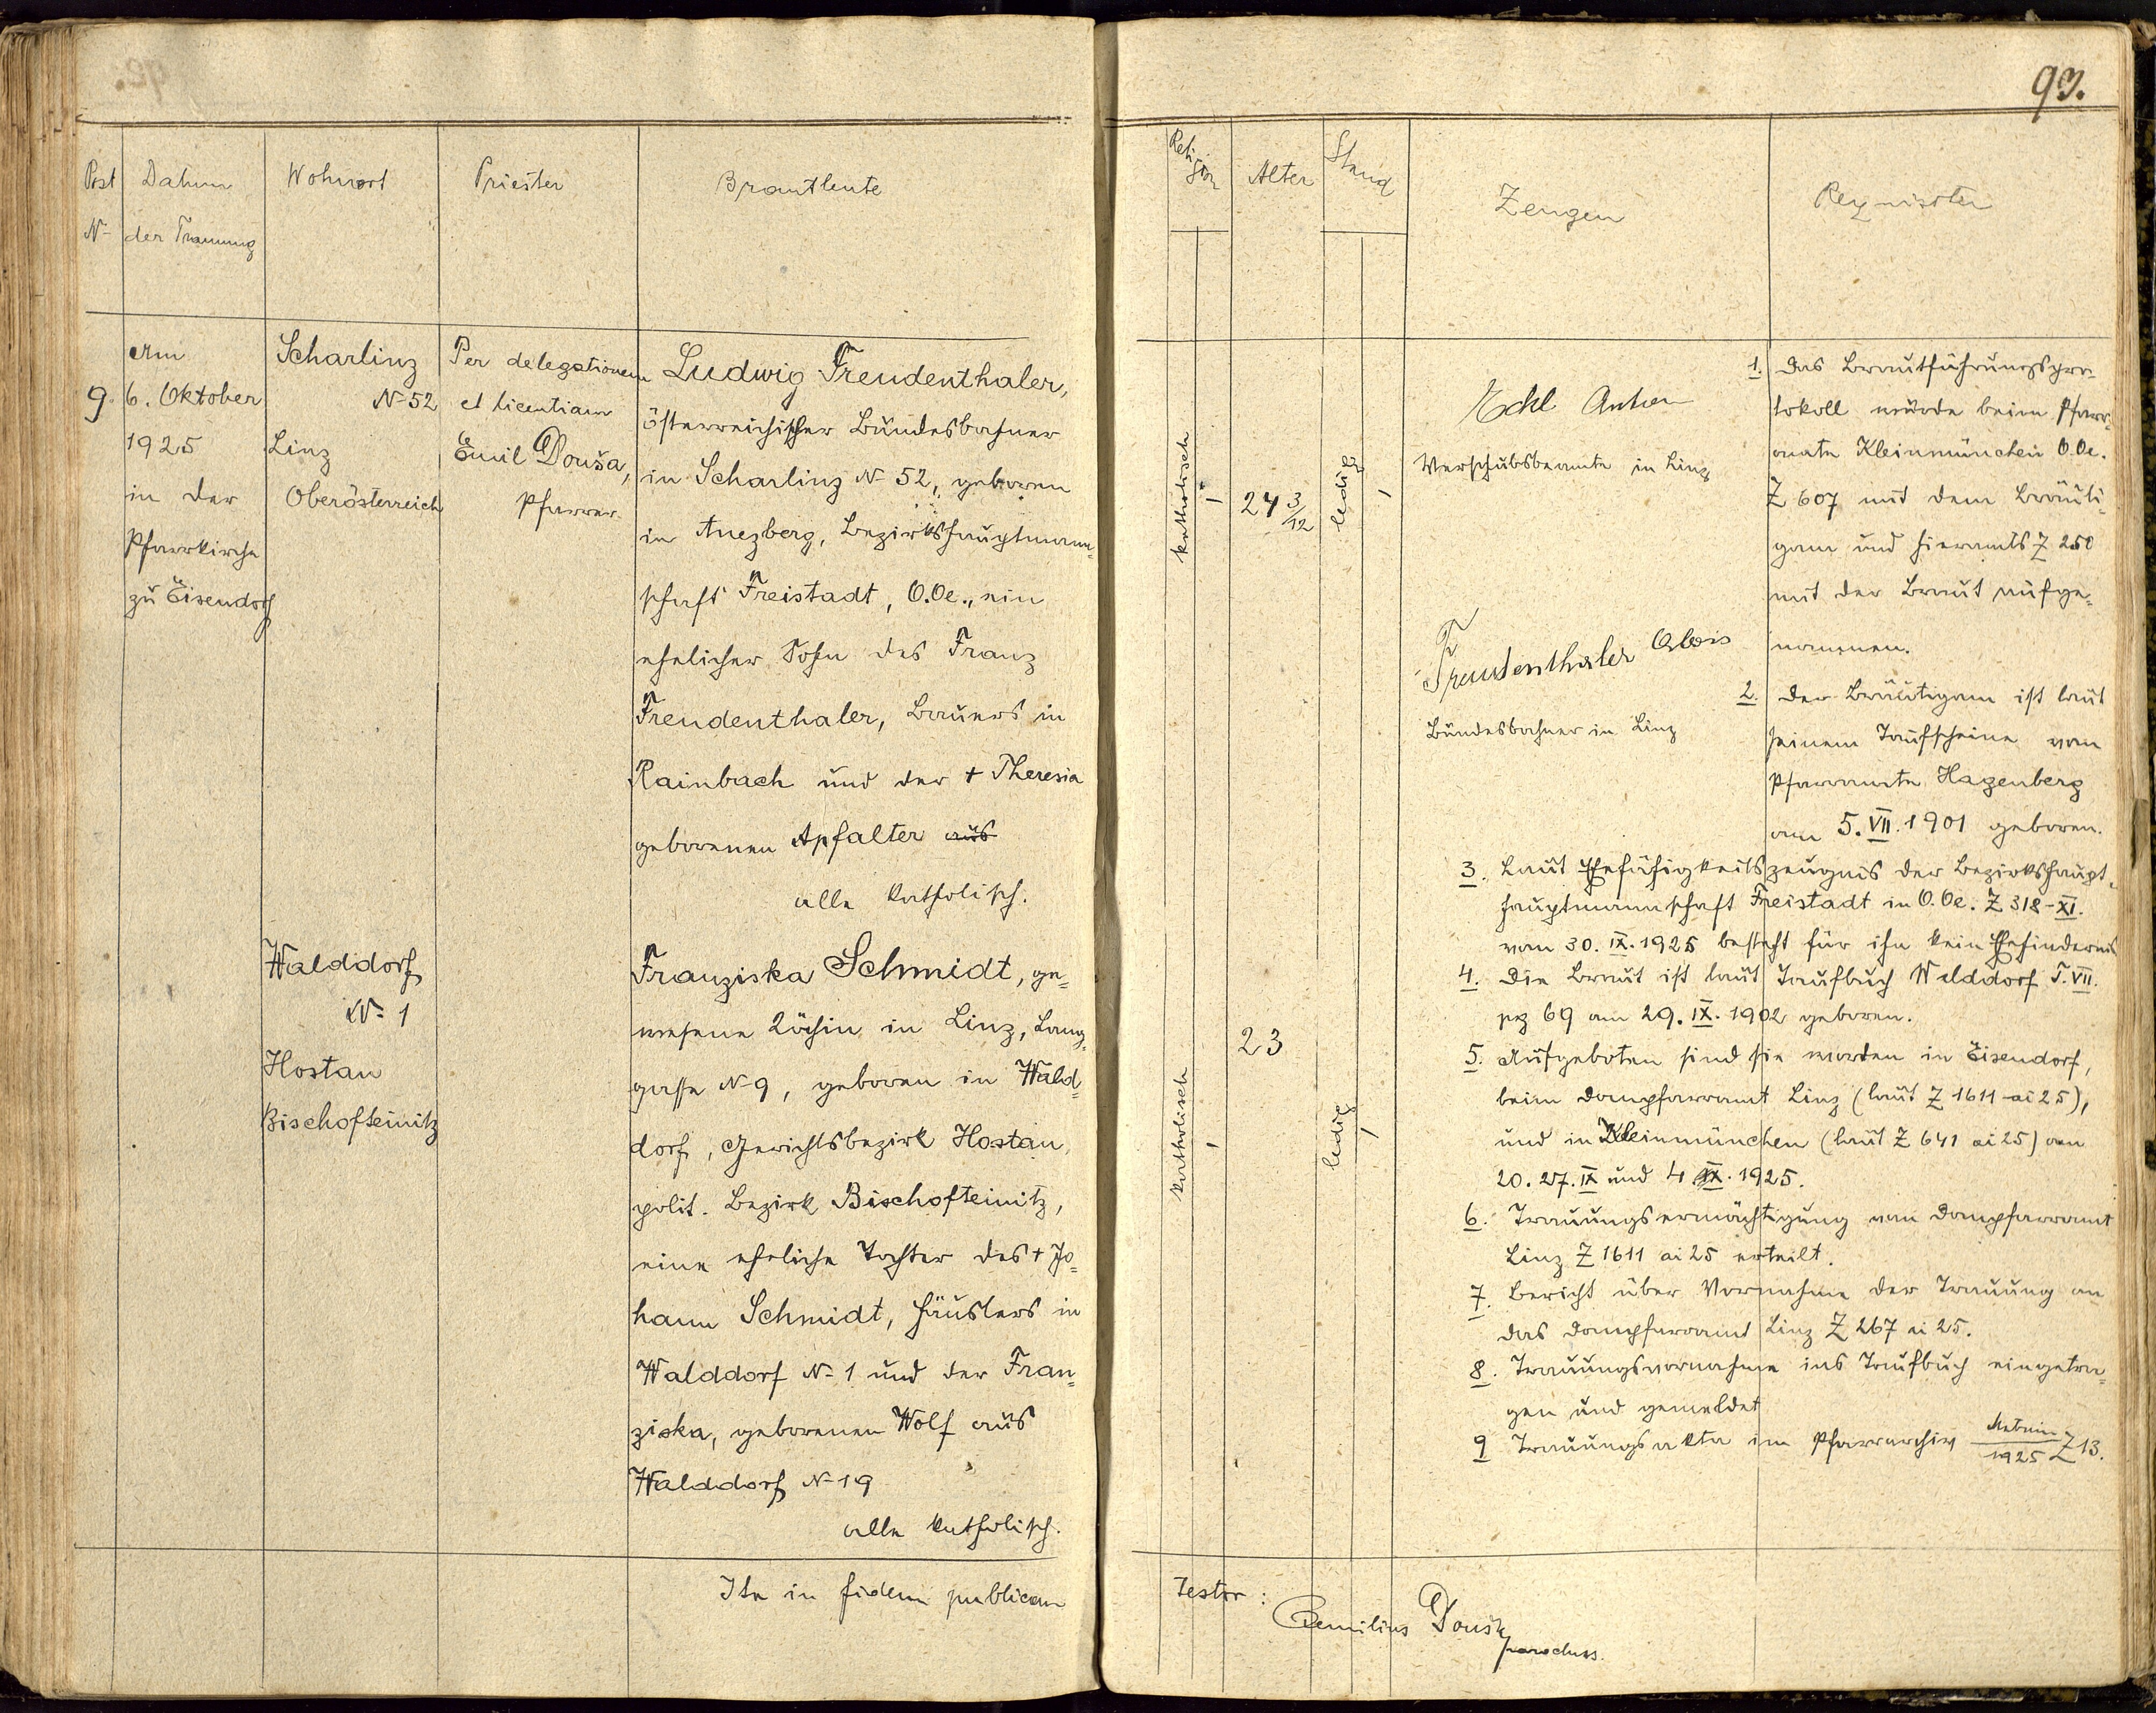 93.
Post
N-
Datum
der Trauung
Wohnort
Priester
Brautleute
Religion
Alter
Stand
Zeugen
Requisiten
9.
Am
6. Oktober
1925
in der
Pfarrkirche
zu Eisendorf
Scharlinz
N- 52
Linz
Oberösterreich
Per delegationem
et licentiam
Emil Douša,
Pfarrer
Ludwig Freudenthaler,
österreichischer Bundesbahner
in Scharlinz N- 52, geboren
in Anezberg, Bezirkshauptmann-
schaft Freistadt, O.Oe., ein
ehelicher Sohn des Franz
Freudenthaler, Bauers in
Rainbach und der + Theresia
geborenen Apfalter aus
alle katholisch.
Walddorf
N- 1
Hostau
Bischofteinitz
Franziska Schmidt, ge-
wesene Köchin in Linz, Lang-
gasse N- 9, geboren in Wald-
dorf, Gerichtsbezirk Hostau,
polit. Bezirk Bischofteinitz,
eine eheliche Tochter des + Jo-
hann Schmidt, Häuslers in
Walddorf N- 1 und der Fran-
ziska, geborenen Wolf aus
Walddorf N- 19
alle katholisch.
Ita in fidem publicam
katholisch
1
24 3/12
ledig
1
katholisch
1
23
ledig
1
Eckl Anton
Verschubsbeamte in Linz
Freudenthaler Alois
Bundesbahner in Linz
1. Das Brautführungspro-
tokoll wurde beim Pfarr-
amte Kleinmünchen O.Oe.
Z 607 mit dem Bräuti-
gam und hieramts Z 250
mit der Braut aufge-
nommen.
2. Der Bräutigam ist laut
seinem Taufscheine vom
Pfarramte Hagenberg
am 5. VII. 1901 geboren.
3. Laut Ehefähigkeitszeugnis der Bezirkshaupt-
hauptmannschaft Freistadt in O.Oe. Z 318-XI.
vom 30. IX. 1925 besteht für ihn kein Ehehindernis
4. Die Braut ist laut Taufbuch Walddorf T. VII.
pg 69 am 29. IX. 1902 geboren.
5. Aufgeboten sind sie worden in Eisendorf,
beim Dompfarramt Linz (laut Z 1611 ai 25),
und in Kleinmünchen (laut Z 641 ai 25) am
20. 27. IX und 4. X. 1925.
6. Trauungsermächtigung vom Dompfarramt
Linz Z 1611 ai 25 erteilt.
7. Bericht über Vornahme der Trauung an
das Dompfarramt Linz Z 267 ai 25.
8. Trauungsvornahme ins Taufbuch eingetra-
gen und gemeldet
9 Trauungsakta im Pfarrarchiv Z 13.
1925
Testor:
Aemilius Douša
parochus.